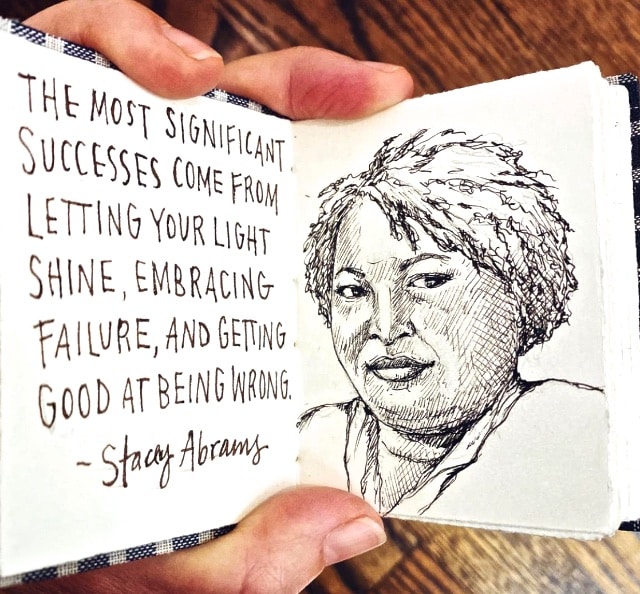 THE MOST SIGNIFICANT
SUCCESSES COME FROM
LETTING YOUR LIGHT
SHINE, EMBRACING
FAILURE, AND GETTING
GOOD AT BEING WRONG.
~Stacey Abrams